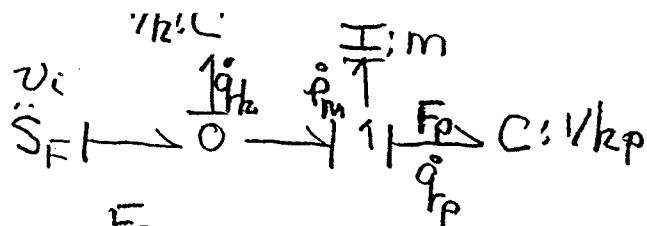 1/k:C
I:m
vi q̇k ṗm
S̈F 0 1 Fp C:1/kp
q̇p
F